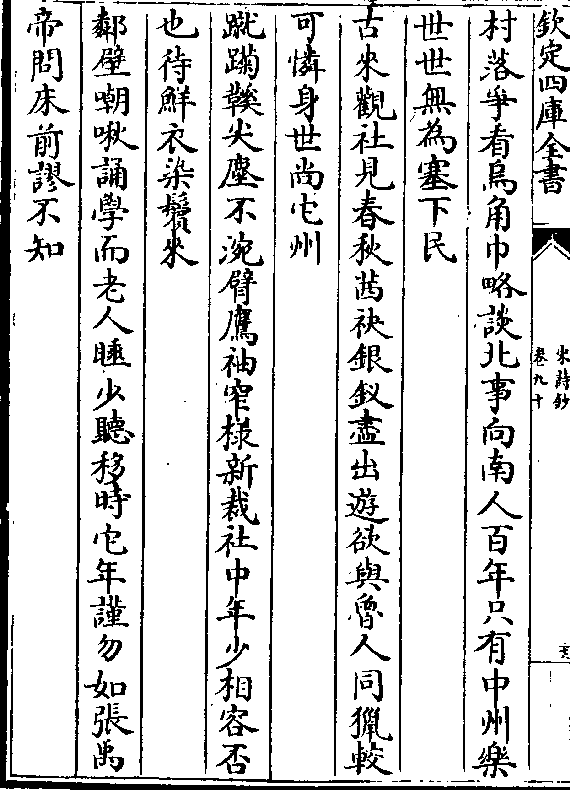 欽定四庫全書
宋詩鈔
卷九十
村落爭看烏角巾略談北事向南人百年只有中州樂
世世無為塞下民
古來觀社見春秋茜袂銀釵盡出遊欲與魯人同獵較
可憐身世尚它州
蹴踘鞵尖塵不涴臂鷹袖窄様新裁社中年少相容否
也待鮮衣染鬢來
鄰壁嘲啾誦學而老人睡少聽移時它年謹勿如張禹
帝問床前謬不知